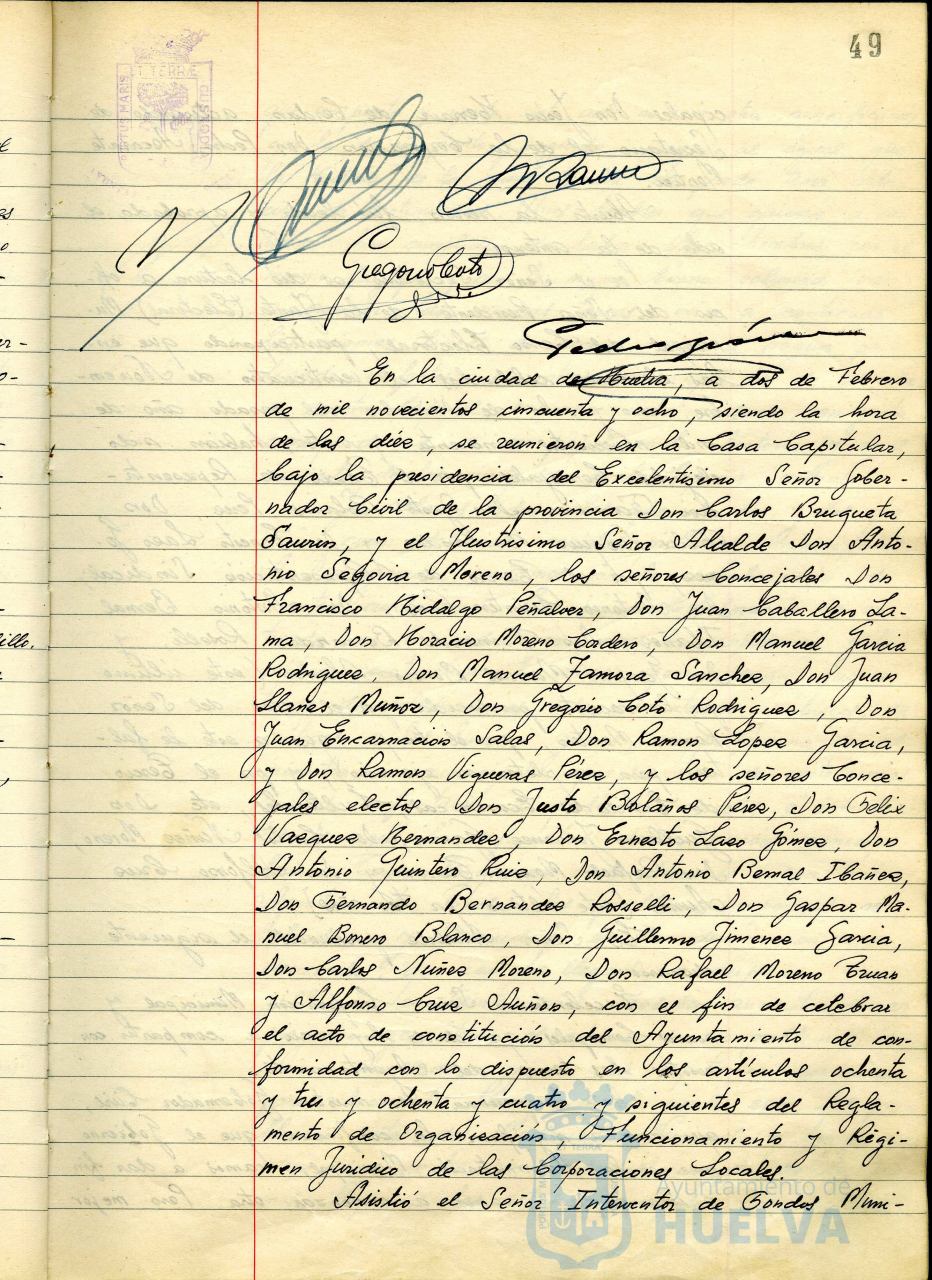 49
PORTUS MARIS
ET TERRÆ
CUSTODIA
Gregorio Coto
En la ciudad de Huelva, a dos de Febrero
de mil novecientos cincuenta y ocho, siendo la hora
de las diez, se reunieron en la Casa Capitular,
bajo la presidencia del Excelentisimo Señor Gober-
nador Civil de la provincia Don Carlos Brugueta
Saurin, y el Ilustrisimo Señor Alcalde Don Anto-
nio Segovia Moreno, los señores Concejales Don
Francisco Hidalgo Peñalver, Don Juan Caballero La-
ma, Don Horacio Moreno Cadero, Don Manuel Garcia
Rodriguez, Don Manuel Zamora Sanchez, Don Juan
Llanes Muñoz, Don Gregorio Coto Rodriguez, Don
Juan Encarnación Salas, Don Ramon Lopez Garcia,
y Don Ramon Vigueras Pérez, y los señores Conce-
jales electos Don Justo Bolaños Pérez, Don Felix
Vazquez Hernandez, Don Ernesto Lazo Gómez, Don
Antonio Quintero Ruiz, Don Antonio Bernal Ibañez,
Don Fernando Bernandez Rosselli, Don Gaspar Ma-
nuel Borrero Blanco, Don Guillermo Jimenez Garcia,
Don Carlos Nuñez Moreno, Don Rafael Moreno Truan
y Alfonso Cruz Auñon, con el fin de celebrar
el acto de constitución del Ayuntamiento de con-
formidad con lo dispuesto en los artículos ochenta
y tres y ochenta y cuatro y siguientes del Regla-
mento de Organización, Funcionamiento y Régi-
men Jurídico de las Corporaciones Locales.
Asistió el Señor Interventor de Fondos Muni-
Ayuntamiento de
HUELVA